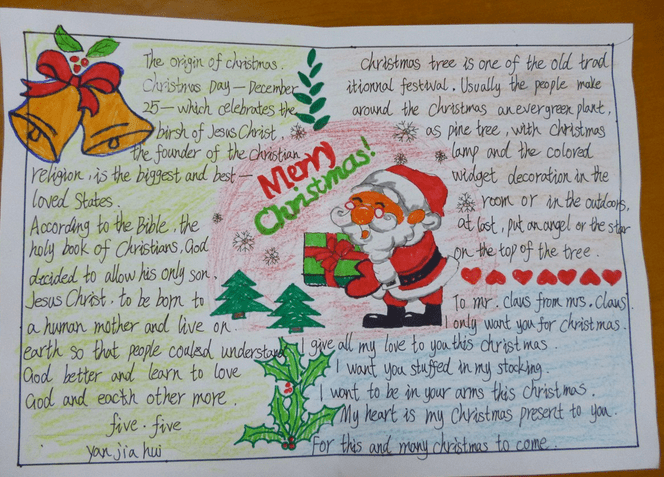 The origin of christmas.
Christmas Day — December
25 — which celebrates the
birsh of Jesus Christ,
the founder of the Christian
religion, is the biggest and best —
loved States.
According to the Bible, the
holy book of Christians. God
decided to allow his only son.
Jesus Christ, to be born to
a human mother and live on
earth so that people could understand
God better and learn to love
God and eacth other more.
five . five
yan jia hui
Merry
Christmas!
christmas tree is one of the old trad
itionnal festival. Usually the people make
around the Christmas an evergreen plant,
as pine tree, with christmas
lamp and the colored
widget decoration in the
room or in the outdoors,
at last, put an angel or the star
on the top of the tree.
To mr. claus from mrs. Claus.
I only want you for christmas.
I give all my love to you this christmas.
I want you stuffed in my stocking.
I want to be in your arms this christmas.
My heart is my christmas present to you.
For this and many christmas to come.